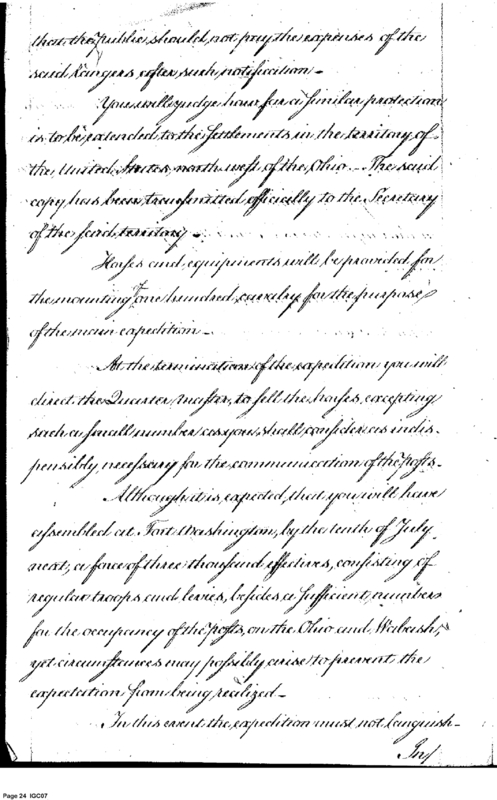 that the public should not pay the expenses of the
said Rangers after such notification –
You will judge how far a similar protection
is to be extended to the Settlements in the territory of
the United States north west of the Ohio – The said
copy has been transmitted officially to the Secretary
of the said territory –
Horses and equipments will be provided for
the mounting of one hundred cavalry for the purpose
of the main expedition –
At the termination of the expedition you will
direct the Quarter Master to sell the horses, excepting
such a small number as you shall consider as indis-
pensibly necessary for the communication of the posts –
Although it is expected, that you will have
assembled at Fort Washington, by the tenth of July
next, a force of three thousand effectives, consisting of
regular troops and levies, besides a sufficient number
for the occupancy of the posts, on the Ohio and Wabash,
yet circumstances may possibly arise to prevent the
expectation from being realized –
In this event the expedition must not languish –
In
Page 24 IGC07